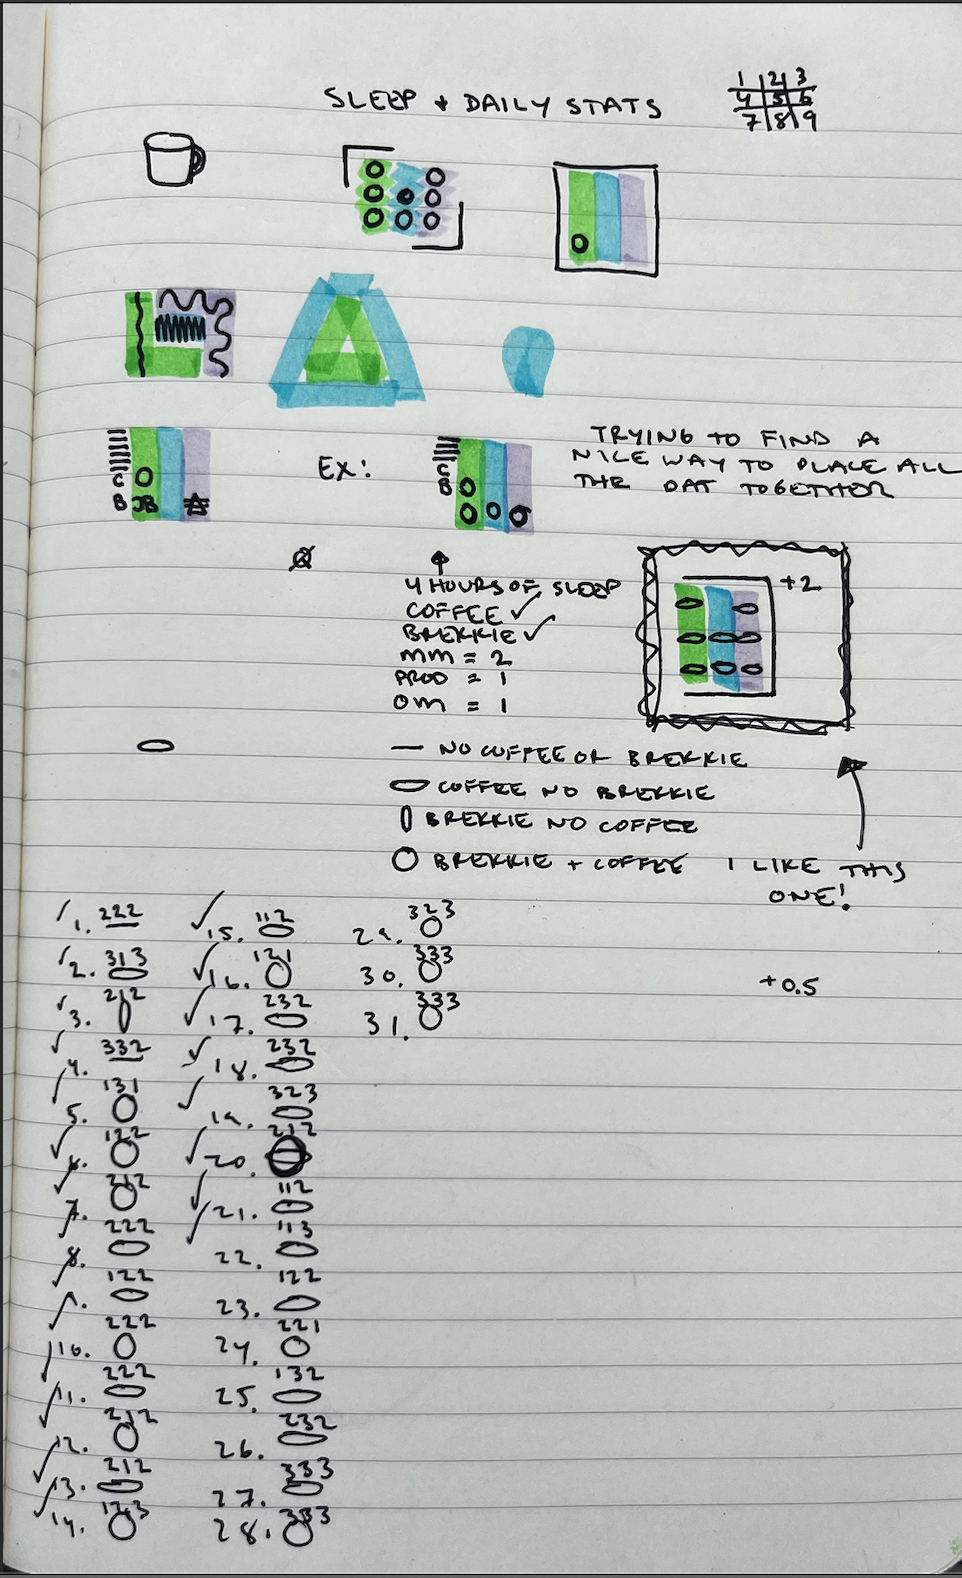 SLEEP + DAILY STATS
1 2 3
4 5 6
7 8 9
TRYING TO FIND A
NICE WAY TO PLACE ALL
THE DAT TOGETHER
C
B JB
EX:
C
B
Ø
4 HOURS OF SLEEP
COFFEE ✓
BREKKIE ✓
MM = 2
PROD = 1
OM = 1
+2
— NO COFFEE OR BREKKIE
COFFEE NO BREKKIE
BREKKIE NO COFFEE
BREKKIE + COFFEE
I LIKE THIS
ONE!
+0.5
✓ 1. 222
✓ 2. 313
✓ 3. 212
✓ 4. 332
✓ 5. 131
✓ 6. 122
✓ 7. 212
✓ 8. 222
✓ 9. 122
✓ 10. 222
✓ 11. 222
✓ 12. 212
✓ 13. 212
✓ 14. 123
✓ 15. 112
✓ 16. 121
✓ 17. 232
✓ 18. 232
✓ 19. 323
✓ 20. 212
✓ 21. 112
22. 113
23. 122
24. 221
25. 132
26. 232
27. 333
28. 333
29. 323
30. 333
31. 333